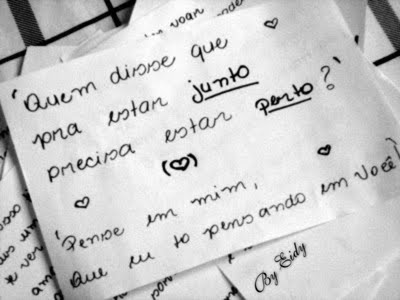 'Quem disse que
pra estar junto
precisa estar perto?'
'Pense em mim,
que eu to pensando em você!'
By Eidy